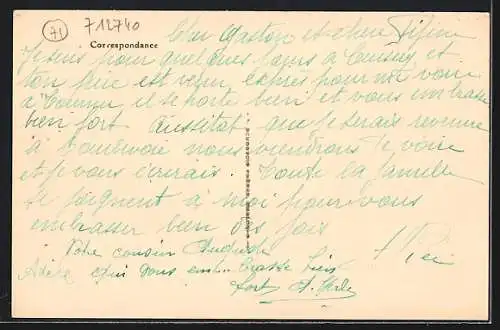 71
712740
Correspondance
Cher Gaston et chère Fifine
Je suis pour quelques jours à Cuisery et
ton père est venu exprès pour me voir
à il se porte bien et vous embrasse
bien fort Aussitot que je serais revenue
à nous viendrons te voir
et je vous écrirais. Toute la famille
se joignent à moi pour vous
embrasser bien des fois
Votre cousin Auguste
Adèle qui vous embrasse bien
fort